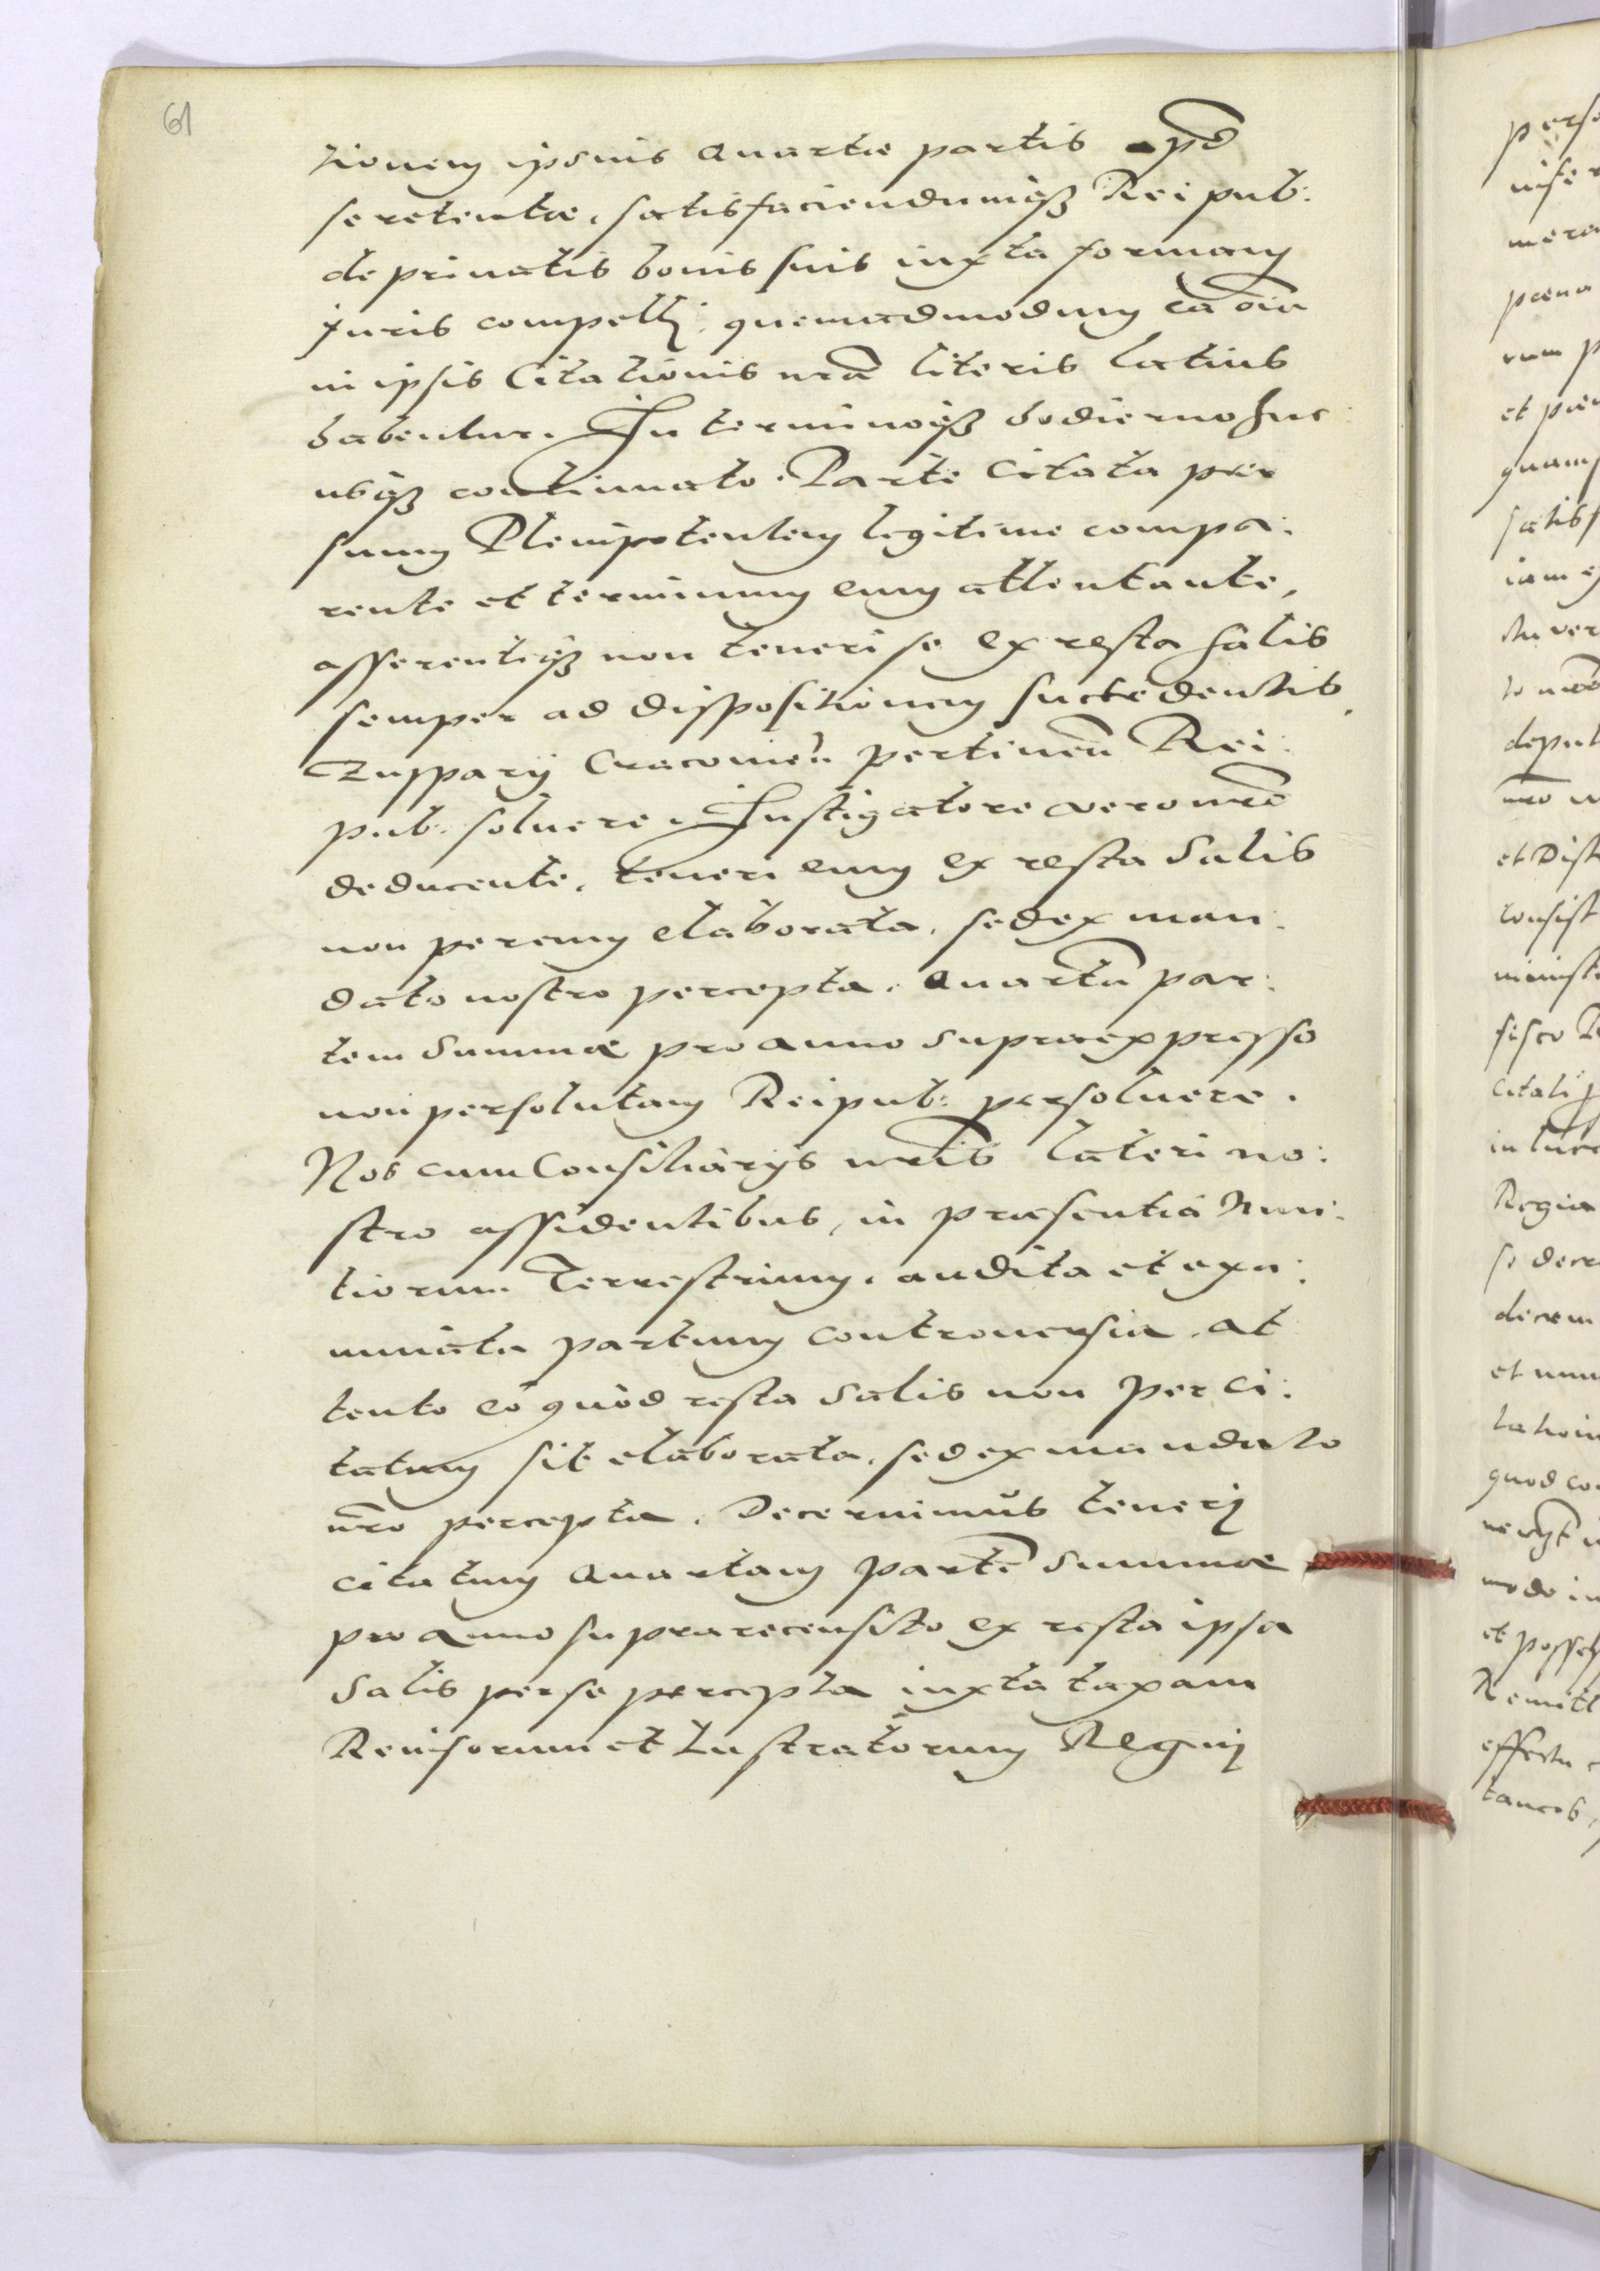 61
tionem ipsius quartæ partis apd
se retentæ, satisfaciendumq3 Rei pub:
de priuatis bonis suis iuxta formam
Juris compelli, quemadmodum ea oia
in ipsis Citationis nrã literis latius
habentur. In terminoq3 hodierno huc
usq3 continuato. Parte Citata per
suum Plenipotentem legitime compa:
rente et terminum eum attentante,
asserentiq3 non teneri se ex resta salis
semper ad dispositionem succedentis
Zupparij Cracouien pertinen Rei:
pub. soluere. Instigatore vero nrõ
deducente, teneri eum ex resta Salis
non per eum elaborata, sed ex man:
dato nostro percepta, quartã par:
tem Summæ pro anno supraexpresso
non persolutam Reipub: persoluere.
Nos cum Consiliarijs nrĩs lateri no:
stro assidentibus, in præsentia Nun:
tiorum Terrestrium, audita et exa:
minata partium controuersia, at
tento eo quòd resta Salis non per ci:
tatum sit elaborata, sed ex mandato
nro percepta. Decernimus teneri
citatum quartam partẽ Summæ
pro Anno suprarecensito ex resta ipsa
Salis per se percepta iuxta taxam
Reuisorum et Lustratorum Regni